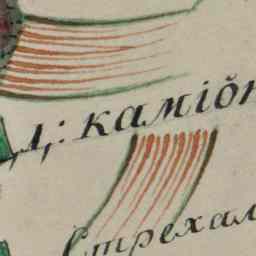 д: каміон
Стрехал